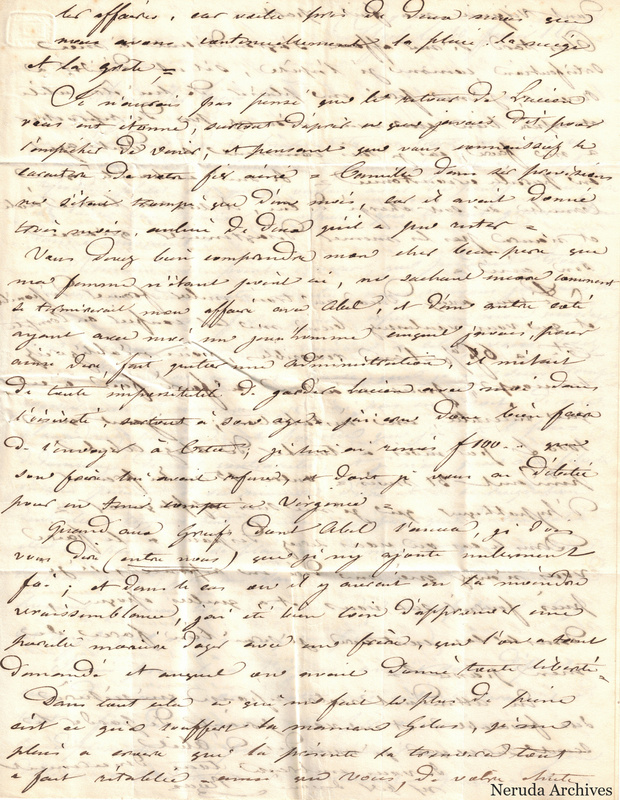 les affaires, car voilà près de deux mois que
nous avons continuellement la pluie la neige
et la grêle =
Je n'aurais pas pensé que le retour de Lucien
vous eut étonné, surtout d'après ce que j'avais dit pour
l'empêcher de venir, et pensant que vous connaissiez le
caractère de votre fils ainé = Camille dans ses prévisions
ne s'était trompé que d'un mois, car il avait donné
trois mois, au lieu de deux qu'il a pu rester =
Vous devez bien comprendre mon cher beau père que
ma femme n'étant point ici, ne sachant même comment
se terminerait mon affaire avec Abel, et d'un autre côté
ayant avec moi un jeune homme auquel j'avais, pour
ainsi dire, fait quitter une administration, il m'était
de toute impossibilité de garder Lucien avec moi dans
l'oisiveté surtout à son age = j'ai cru donc bien faire
de l'envoyer à Cette, je lui ai remis f 100 = que
son frère lui avait refusé et dont je vous ai débité
pour en tenir compte à Virginie =
Quand aux griefs dont Abel l'accuse, je dois
vous dire (entre nous) que je n'y ajoute nullement
foi, et dans le cas où il y aurait eu la moindre
vraissemblance, j'ai été bien loin d'approuver une
pareille manière d'agir avec un frère, que l'on a tant
demandé et auquel on avait donné toute liberté =
Dans tout cela ce qui me fait le plus de peine
c'est ce qu'a souffert la maman, je me
plais à croire que la présente la trouvera tout
à fait rétablie = ainsi que vous, de votre chute
Neruda Archives